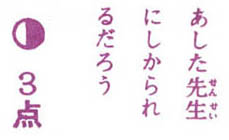 あした先生
せんせい
にしかられ
るだろう
3点